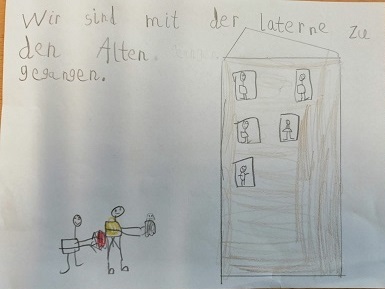 Wir sind mit der laterne zu
den Alten.
gegangen.